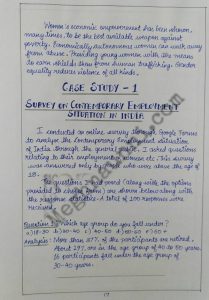 Women's economic empowerment has been shown,
many times, to be the best available weapon against
poverty. Economically autonomous women can walk away
from abuse. Providing young women with the means
to earn shields them from human trafficking. Gender
equality reduces violence of all kinds.
CASE STUDY - 1
SURVEY ON CONTEMPORARY EMPLOYMENT
SITUATION IN INDIA
I conducted an online survey through Google Forms
to analyse the Contemporary Employment situation
of India through the general public. I asked questions
relating to their employment, women etc. This survey
was answered by people who were above the age of
18.
The questions I had posed (along with the options
provided to choose from) are shown below along with
the response statistics. A total of 100 responses were
received.
which age group do you fall under?
a) 18-30 b) 30-40 c) 40-50 d) 50-60 e) 60+
Analysis: More than 37% of the participants are retired.
About 29% are in the age group of 40 to 50 years.
16 participants fall under the age group of
30-40 years.